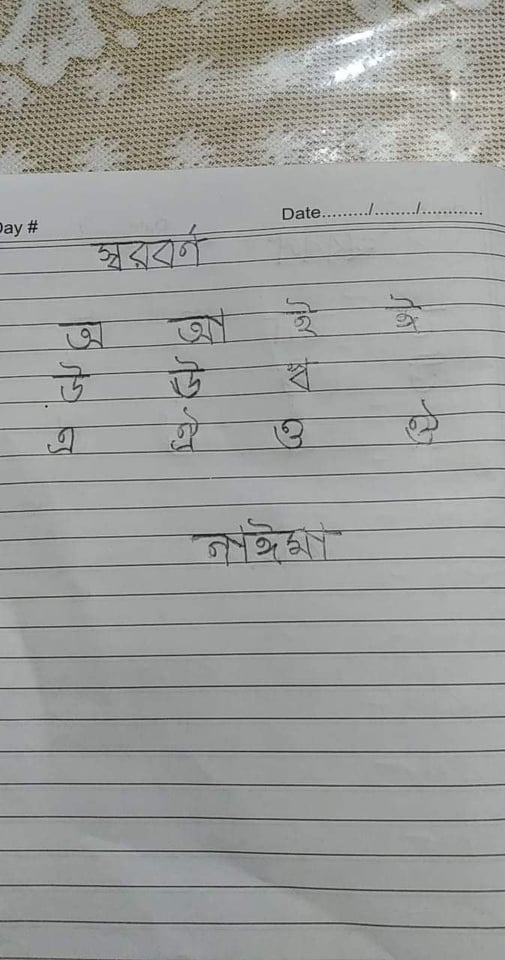 Day #
Date........./........./............
স্বরবর্ণ
অ আ ই ঈ
উ ঊ ঋ
এ ঐ ও ঔ
নাঈমা